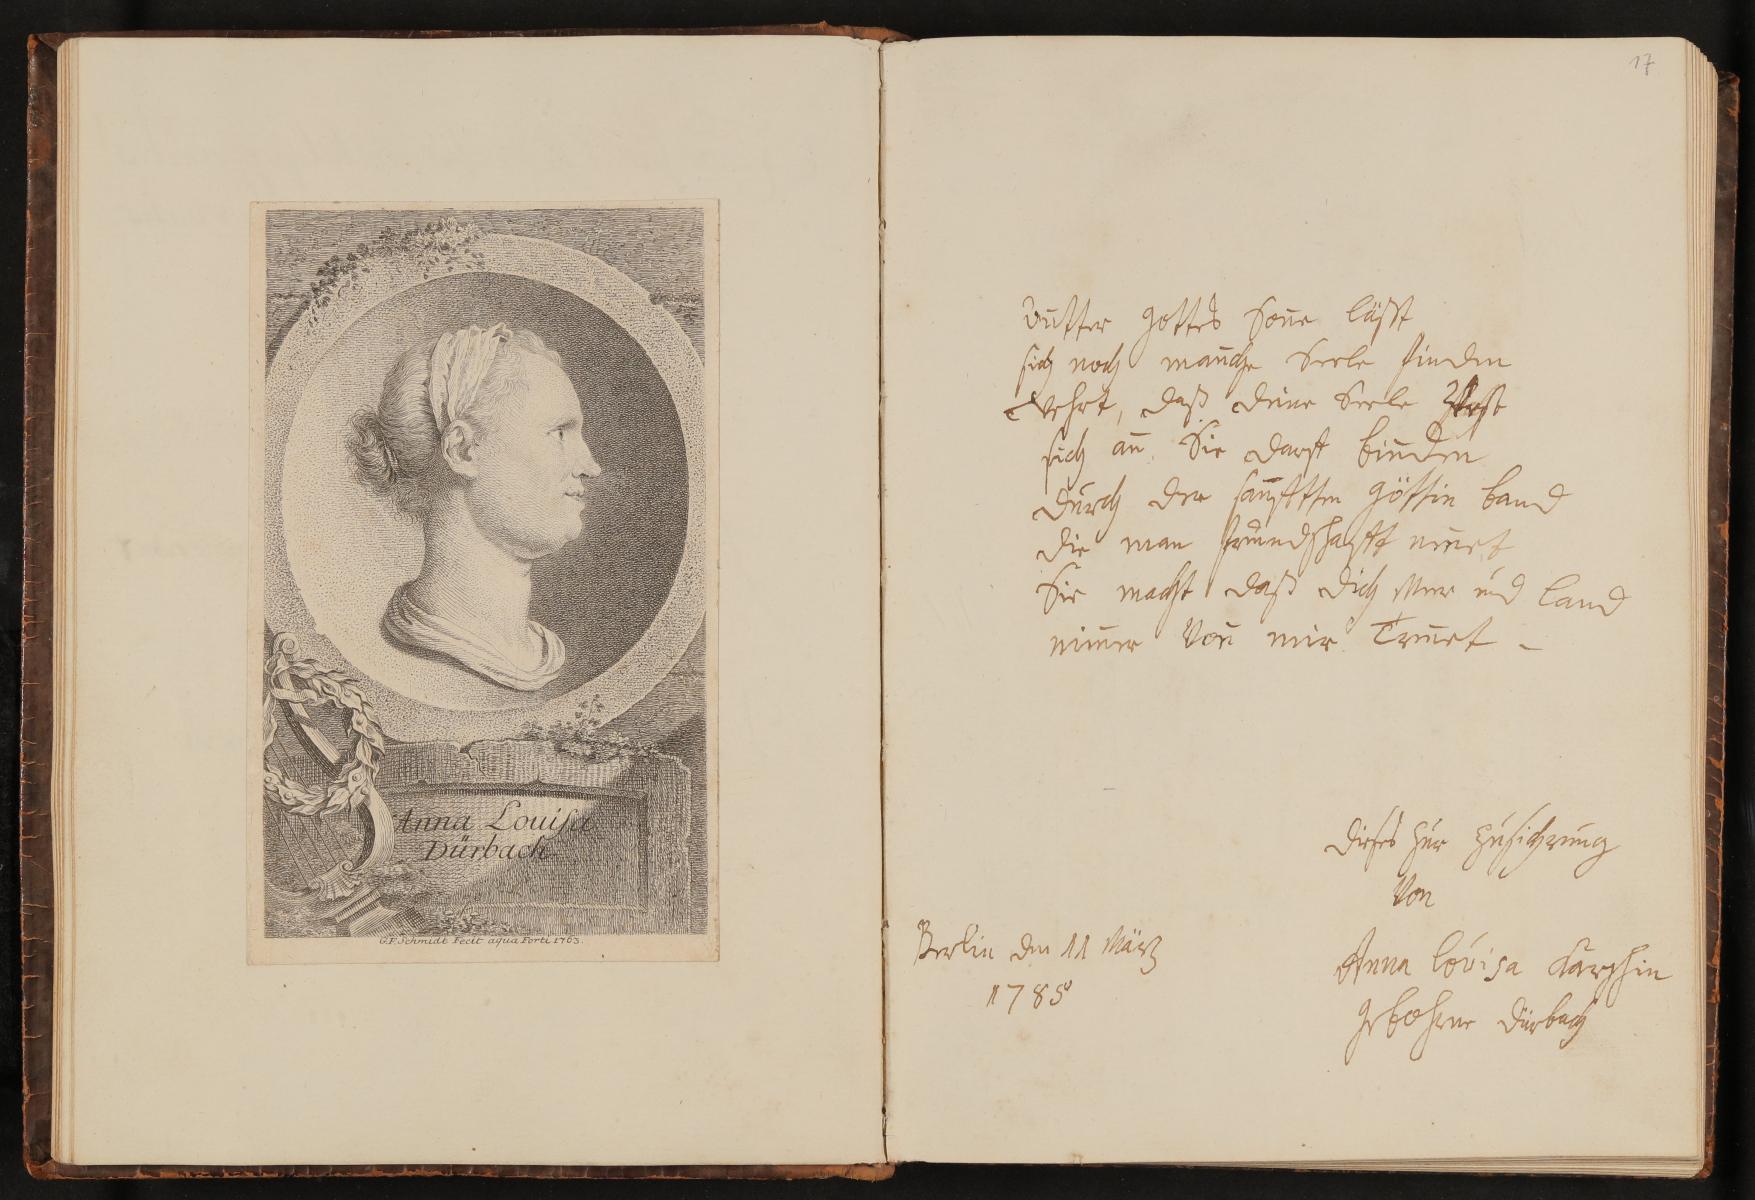 Anna Louisa
Dürbach
G.F. Schmidt Fecit aqua Forti 1763.
17
Untter gottes Soñe lässt
sich noch mañche Seele finden
wehrt, daß deine Seele
sich añ Sie darff binden
durch der sanfftten göttin band
die man freundschafft neñet
Sie macht daß dich Meer und land
nim̃er Von mir Treñet
dieses zur
Von
Anna Lovisa Karschin
gebohrne dürbach
Berlin den 11 März
1785